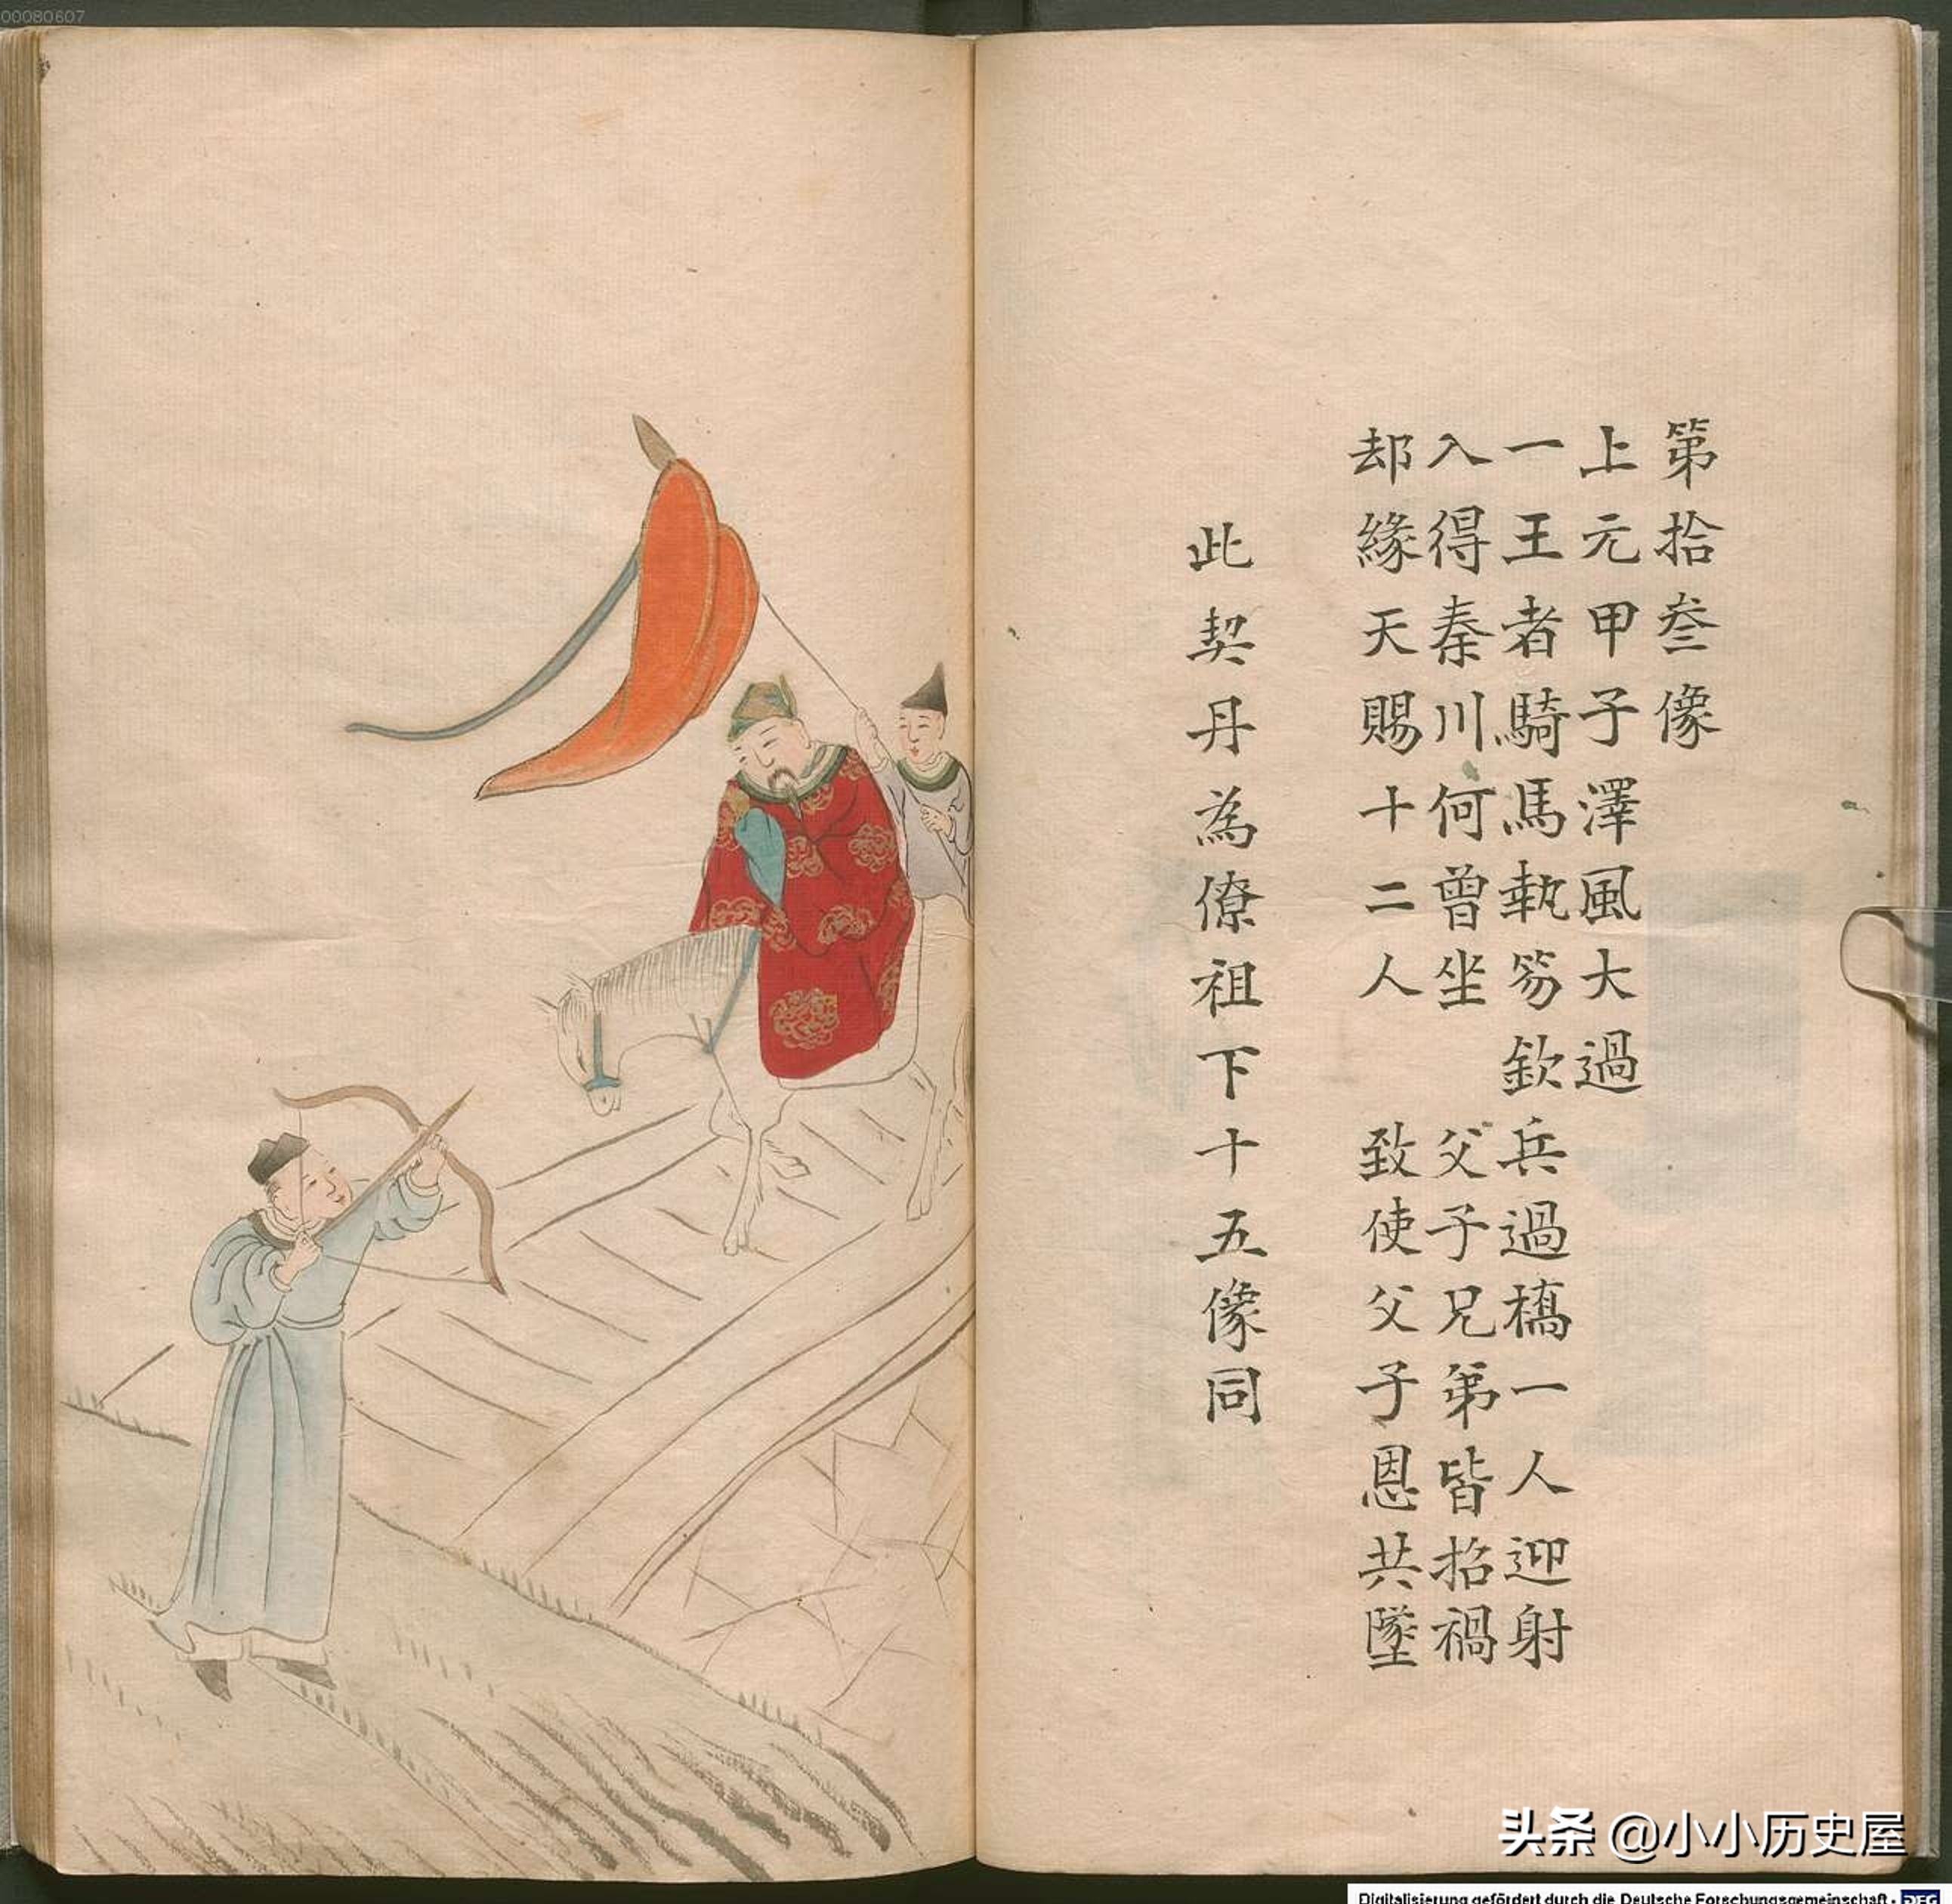 00080607
第拾叁像
上元甲子澤風大過
一王者騎馬執笏欽兵過橋一人迎射
入得秦川何曾坐 父子兄弟皆招禍
却緣天賜十二人 致使父子恩共墜
此契丹為僚祖下十五像同
头条 @小小历史屋
Digitalisierung gefördert durch die Deutsche Forschungsgemeinschaft - DFG